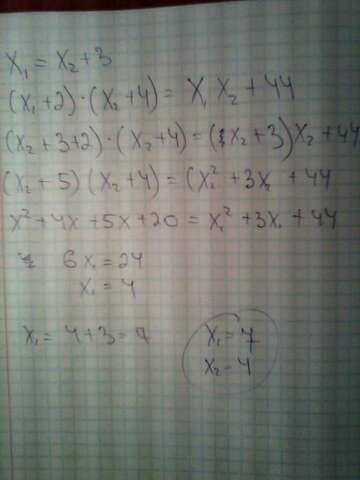 x₁ = x₂ + 3
(x₁+2)·(x₂+4) = x₁ x₂ + 44
(x₂+3+2)·(x₂+4) = (x₂+3)x₂ + 44
(x₂+5)(x₂+4) = (x₂² + 3x₂ + 44
x²+4x+5x+20 = x² + 3x + 44
6x = 24
x = 4
x₁ = 4+3 = 7
x₁ = 7
x₂ = 4